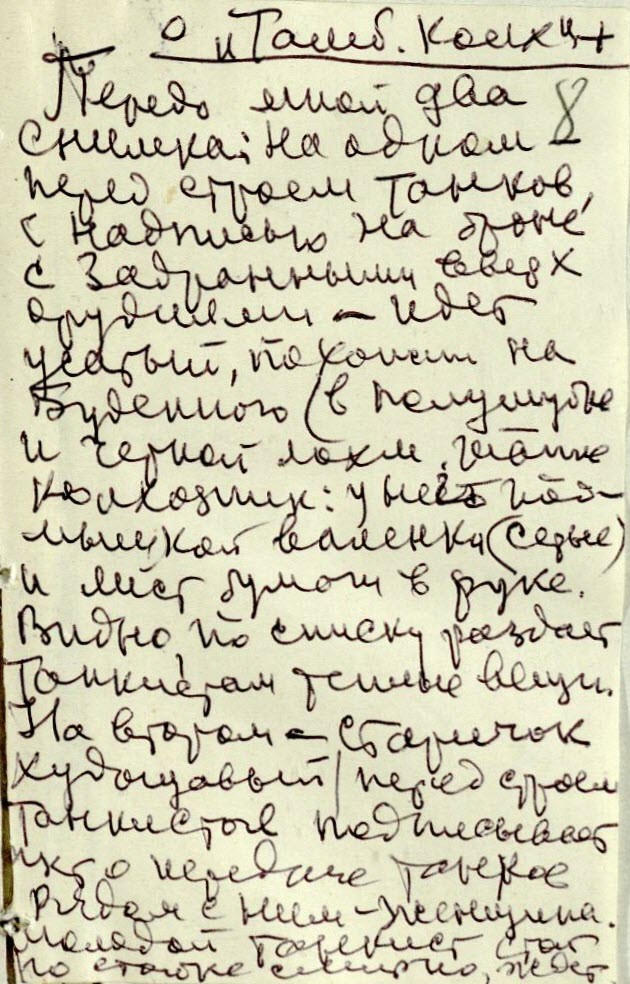 о и Тамб. колхц+
8
Передо мной два
снимка: на одном –
перед строем танков,
с надписью на броне
с задранными вверх
орудиями – идет
усатый, похожий на
Буденного (в полушубке
и черной лохм. шапке
колхозник: у него под-
мышкой валенки (серые)
и лист бумаги в руке.
Видно, по списку раздает
танкистам теплые вещи.
На втором – старичок
худощавый перед строем
танкистов подписывает
акт о передаче танков
Рядом с ним – женщина.
Молодой танкист стоит
по стойке смирно, ждет